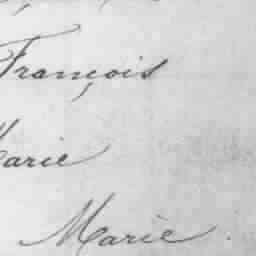 François
Marie
Marie